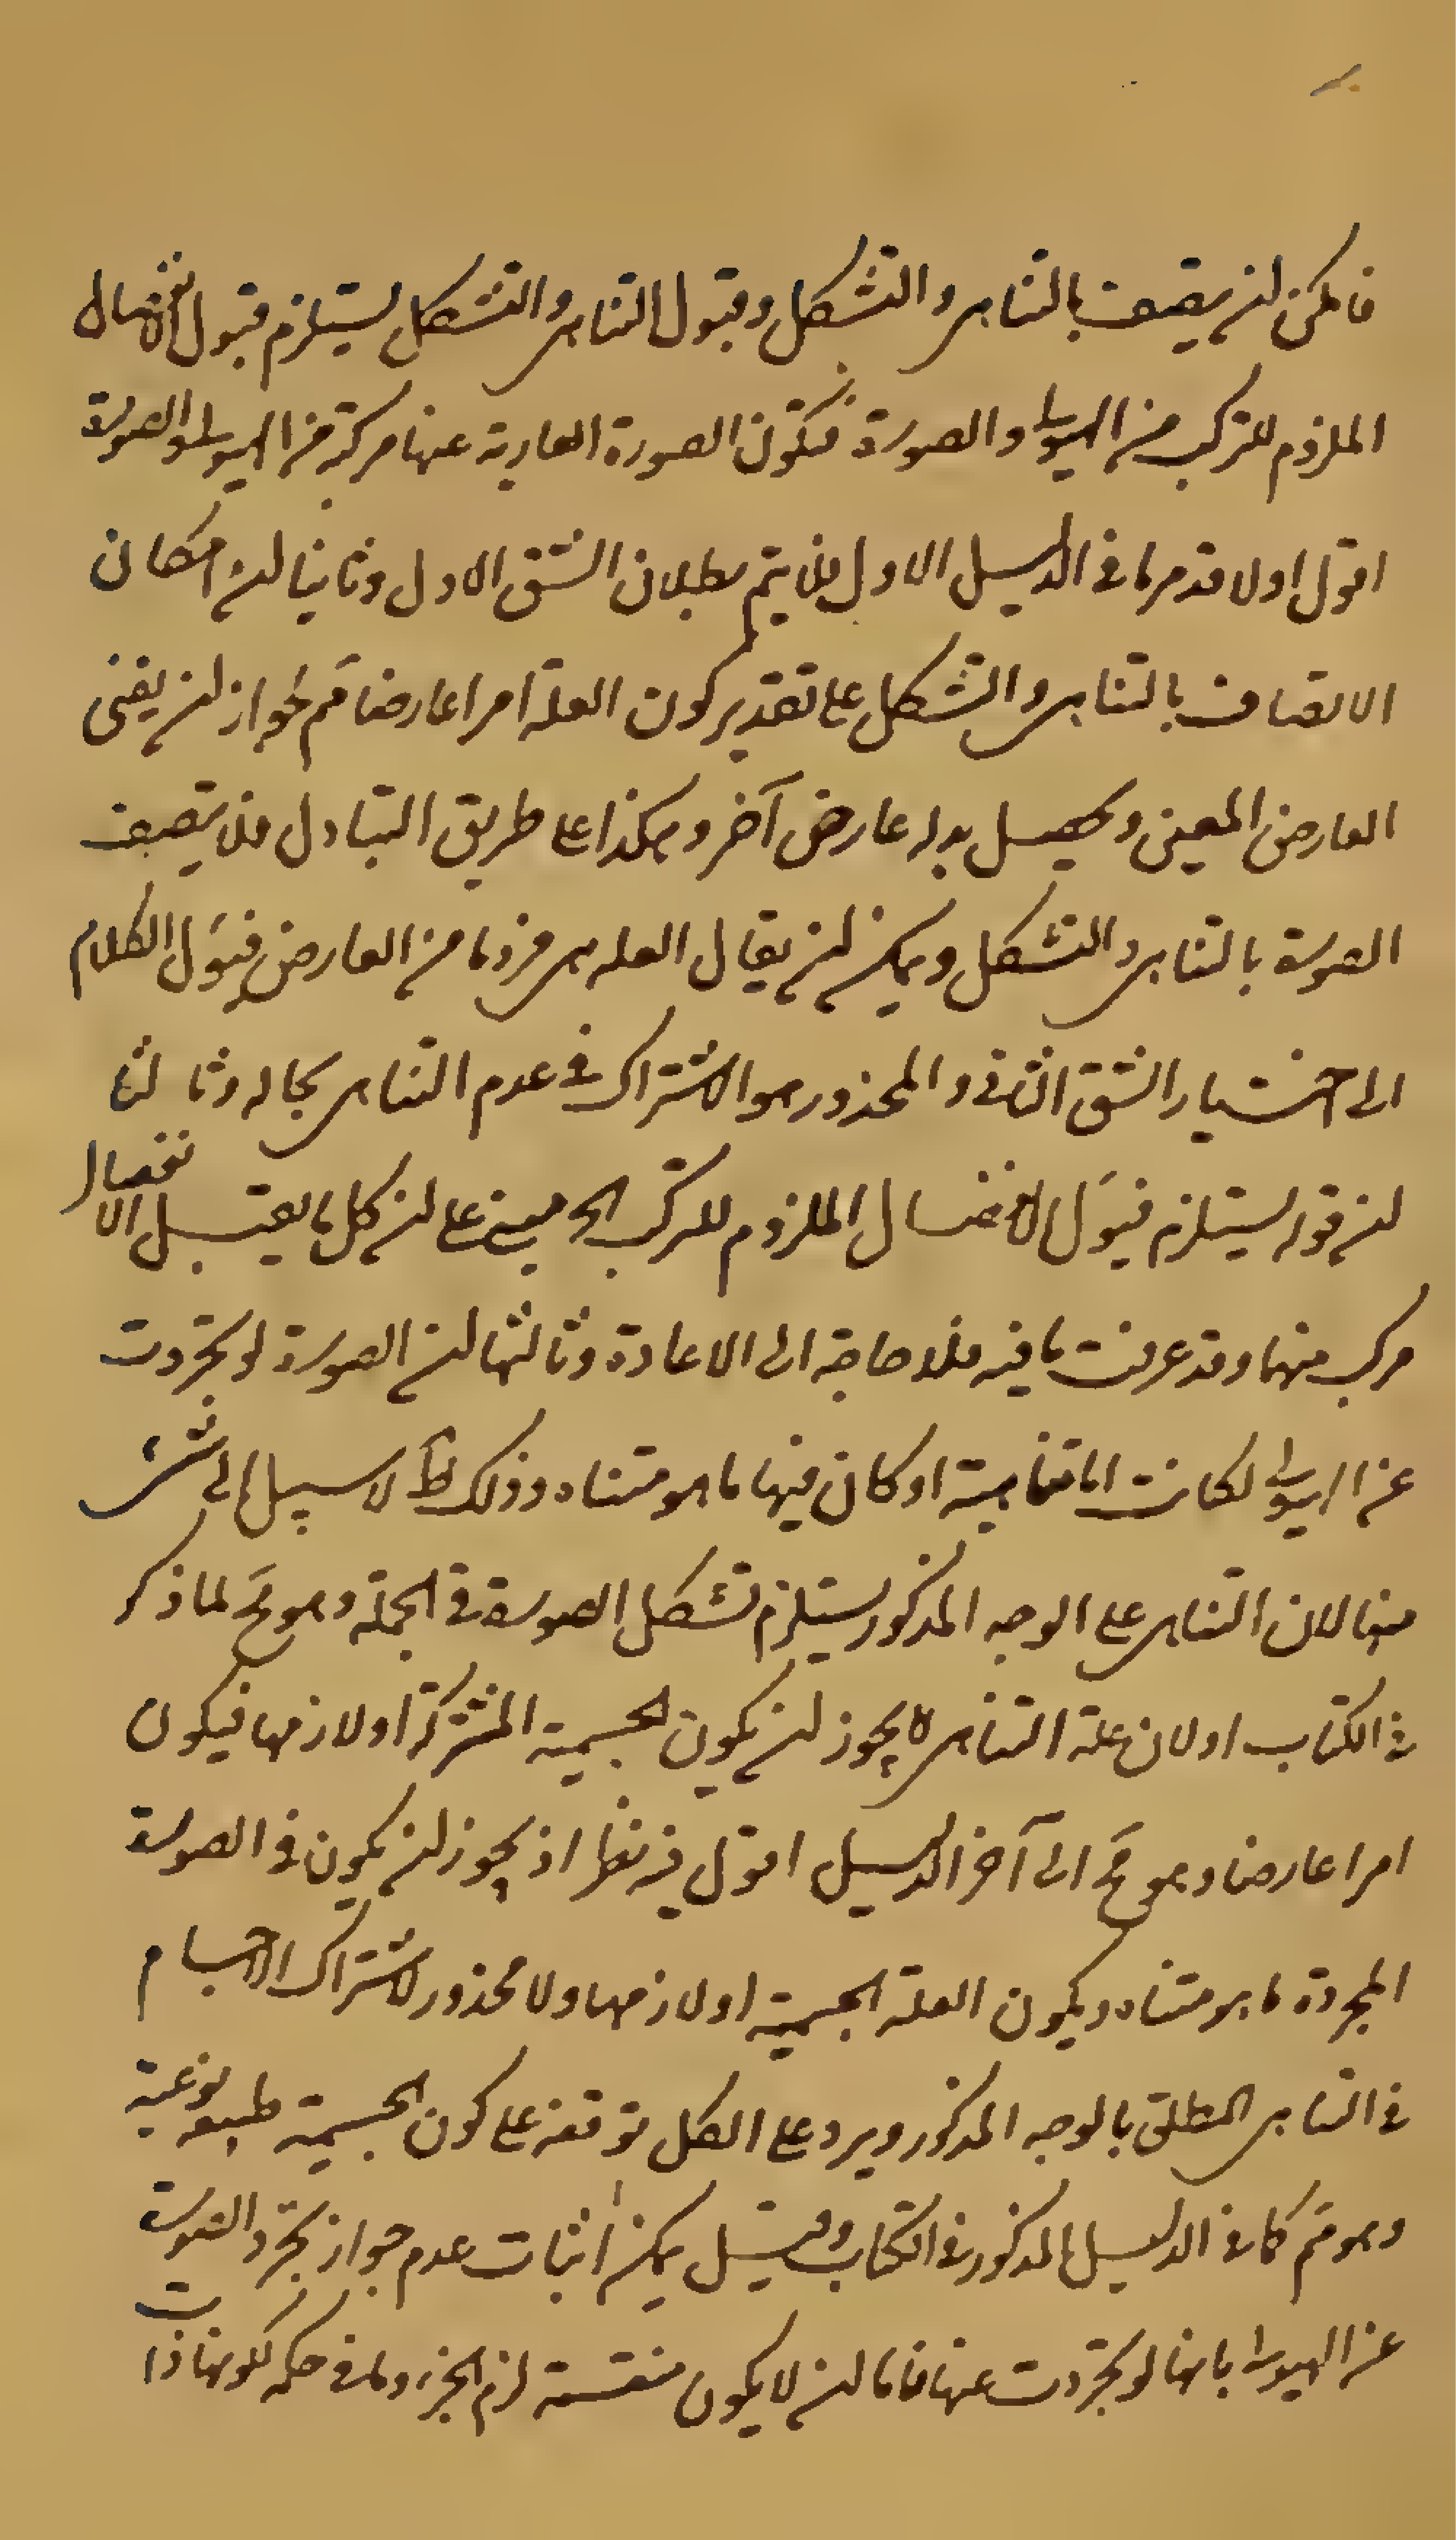 فامكن ان يتصف بالتناهى والتشكل وقبول التناهى والتشكل يستلزم قبول الانفصال
الملزوم للتركب من الهيولى والصورة فتكون الصورة العارية عنها مركبة من الهيولى والصورة
اقول اولا قد مر ما فى الدليل الاول فلا يتم بطلان الشق الاول وثانيا ان امكان
الاتصاف بالتناهى والتشكل على تقدير كون العلة امرا عارضا مم لجواز ان يفنى
العارض المعين ويحصل بدله عارض آخر وهكذا على طريق التبادل فلا يتصف
الصورة بالتناهى والتشكل ويمكن ان يقال العلة هى فرد ما من العارض فيؤل الكلام
الى اختيار الشق الثانى والمحذور هو الاشتراك فى عدم التناهى بحاله وثالثا
ان قوله يستلزم قبول الانفصال الملزوم للتركب الخ مبنى على ان كل ما يقبل الانفصال
مركب منهما وقد عرفت ما فيه فلا حاجة الى الاعادة وثالثها ان الصورة لو تجردت
عن الهيولى لكانت اما متناهية او كان فيها ما هو متناه وذلك لما لا سبيل الى شئ
منهما لان التناهى على الوجه المذكور يستلزم تشكل الصورة فى الجملة وهو مح لما ذكر
فى الكتاب اولان علة التناهى لا يجوز ان يكون الجسمية المشتركة او لازمها فيكون
امرا عارضا وهو مح الى آخر الدليل اقول فيه نظر اذ يجوز ان يكون فى الصورة
المجردة ما هو متناه ويكون العلة الجسمية او لازمها ولا محذور لاشتراك الاجسام
فى التناهى المطلق بالوجه المذكور ويرد على الكل توقفه على كون الجسمية طبيعة نوعية
وهو مم كما فى الدليل المذكور فى الكتاب وقيل يمكن اثبات عدم جواز تجرد الصورة
عن الهيولى بانها لو تجردت عنها فاما ان لا يكون منقسمة لزم الجزء وما فى حكمه لكونها ذات